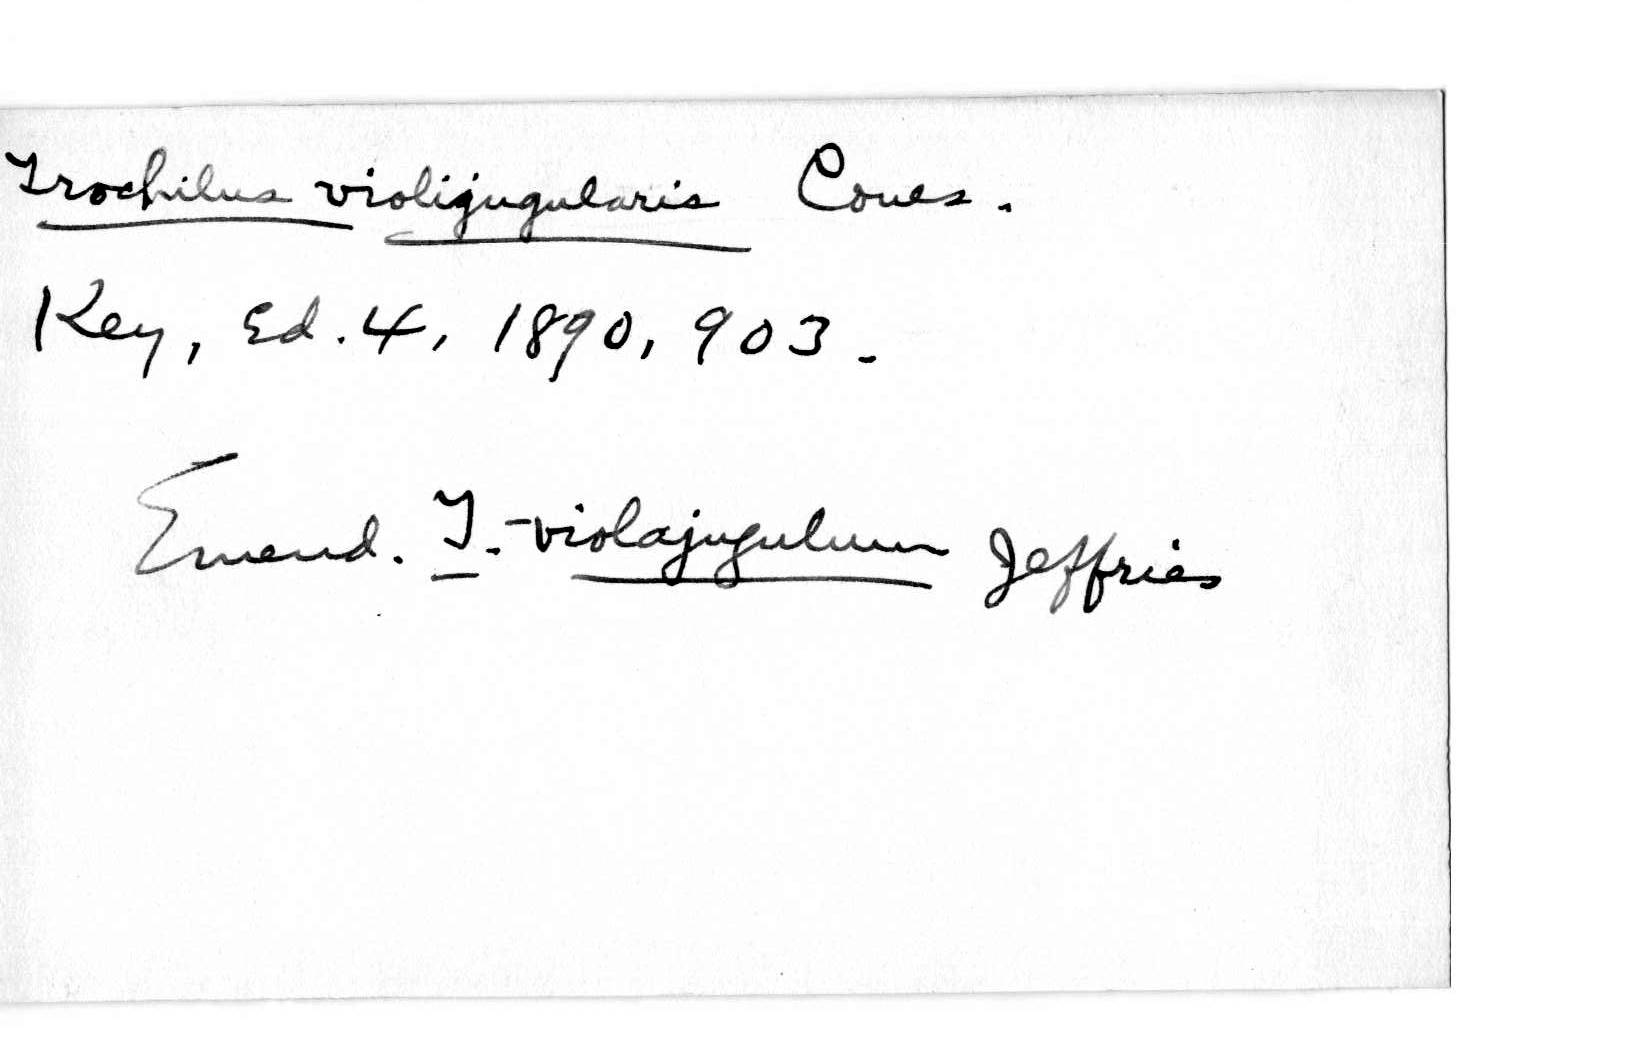 Trochilus violijugularis Coues.
Key, Ed. 4, 1890, 903.
Emend. T. violajugulum Jeffries